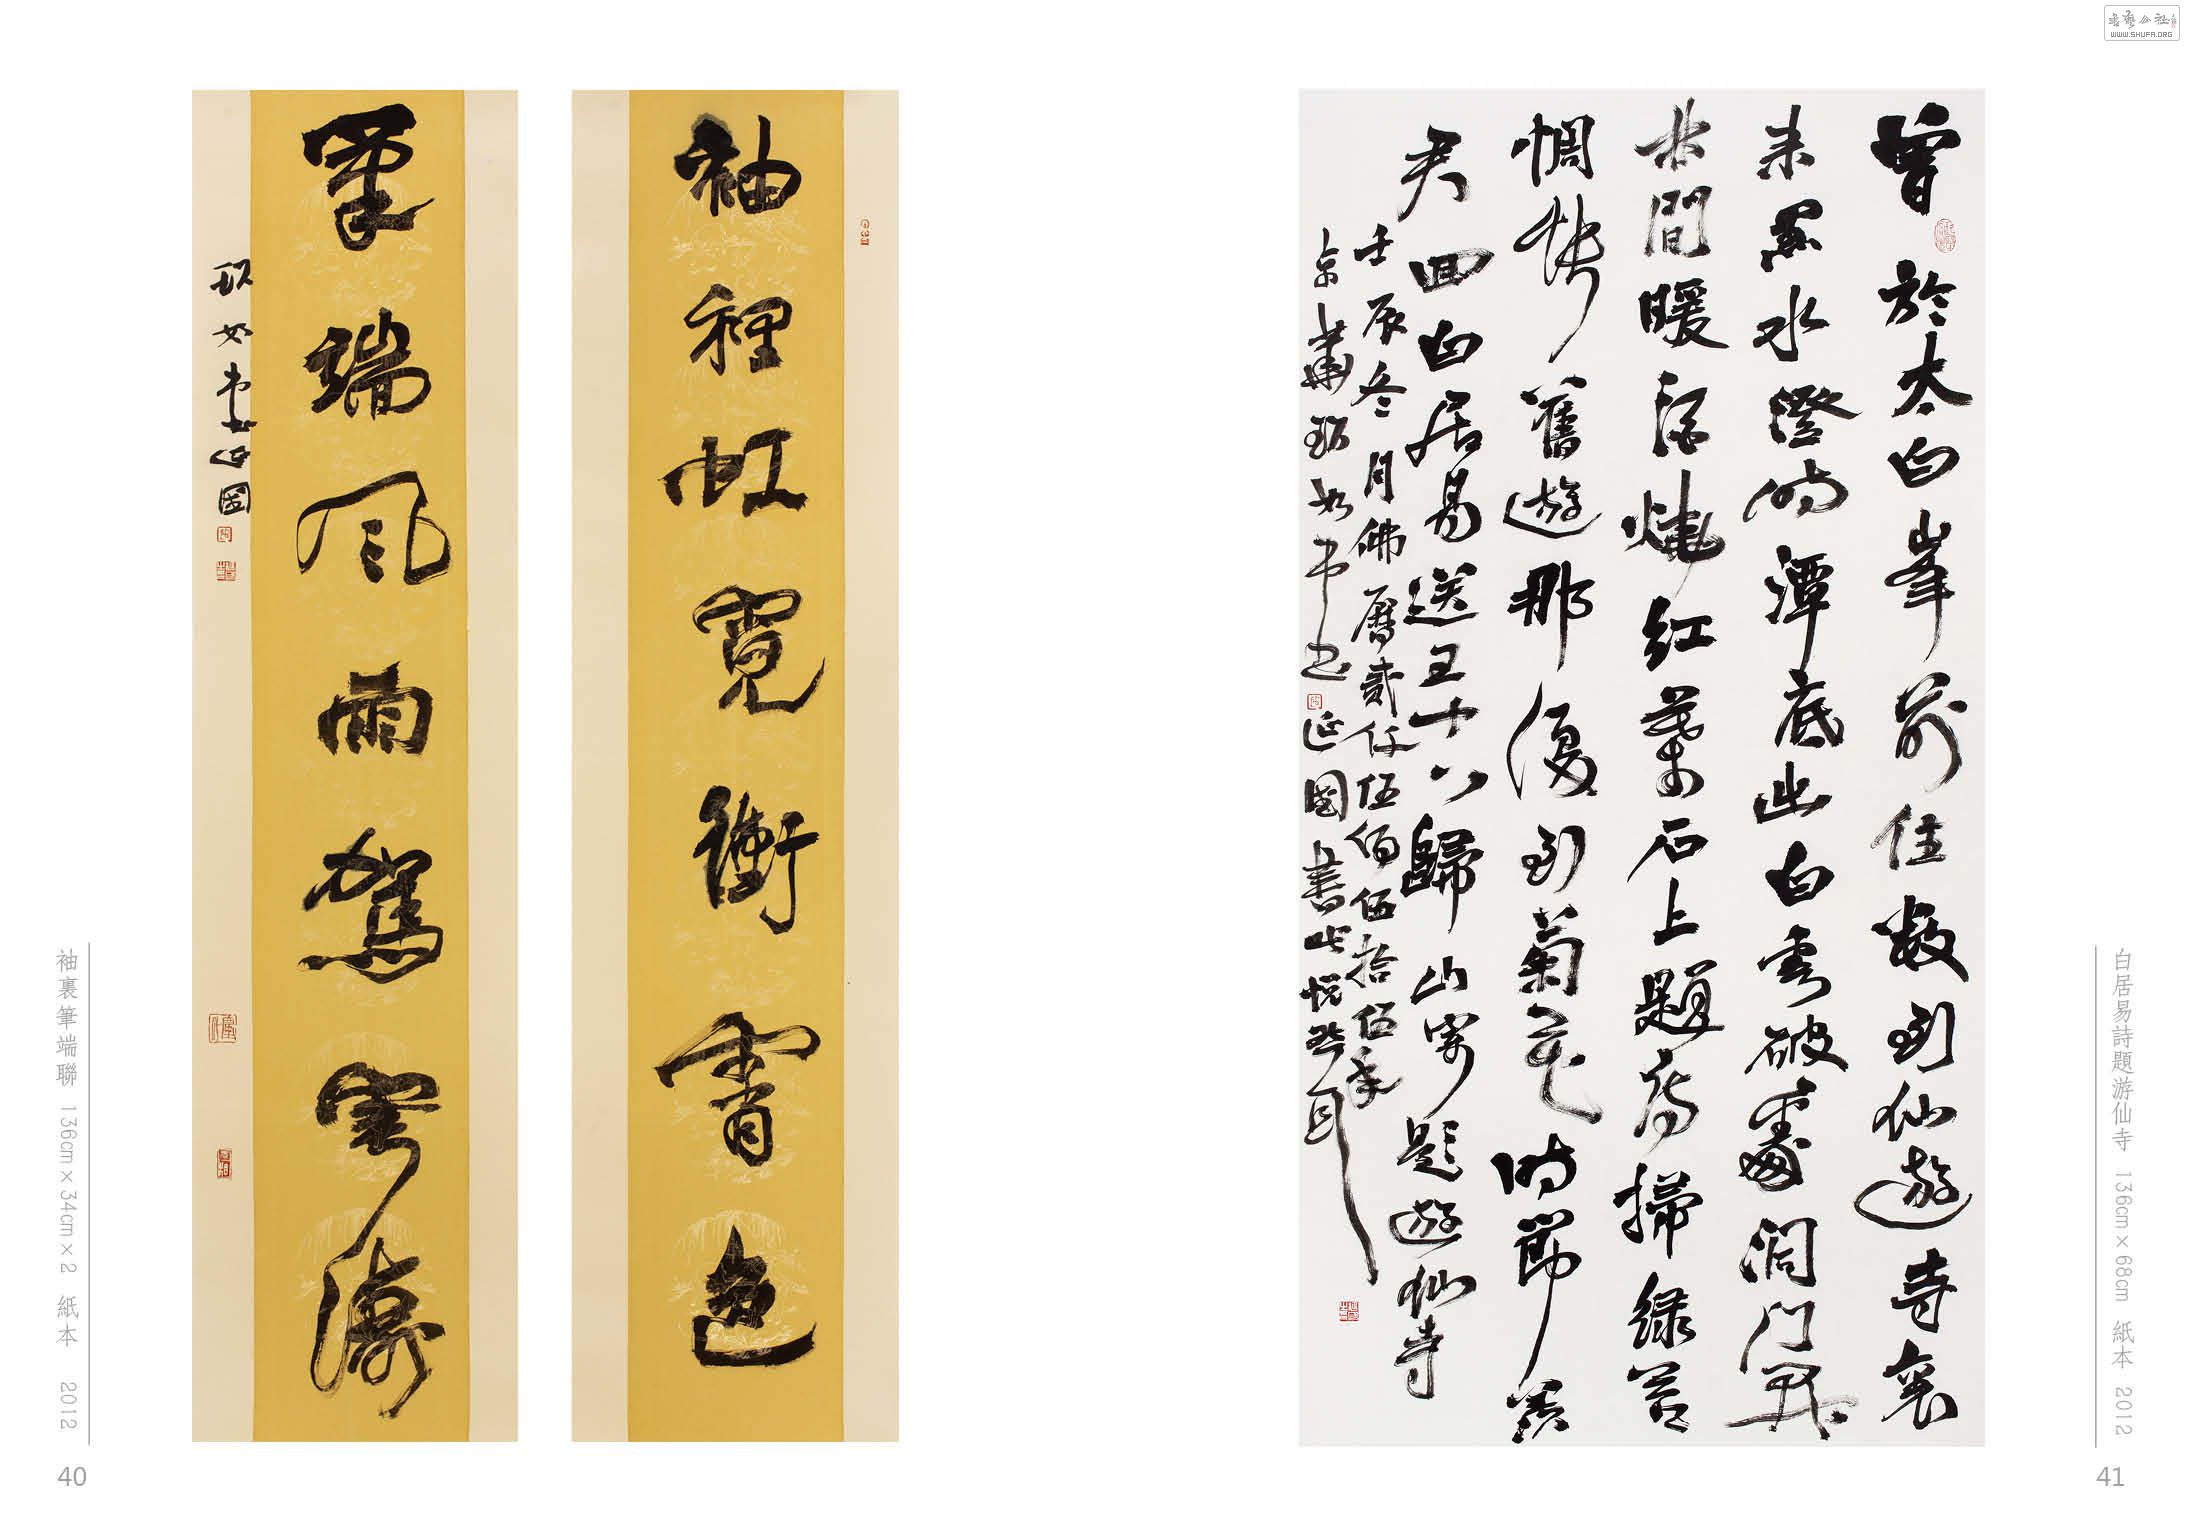 袖裡虹霓衝霄色
筆端風雨駕雲濤
玖如堂主延國
袖裏筆端聯 136cm×34cm×2 紙本 2012
40
書藝公社
WWW.SHUFA.ORG
曾於太白峯前住數到仙遊寺裏
来黑水澄時潭底出白雲破處洞門開
林間暖酒燒紅葉石上題詩掃綠苔
惆悵舊遊那復到菊花時節羨
君回白居易送王十八歸山寄題遊仙寺
壬辰冬月佛曆貳仟伍佰伍拾伍年
京華玖如 延國書此 耳
白居易詩題游仙寺 136cm×68cm 紙本 2012
41